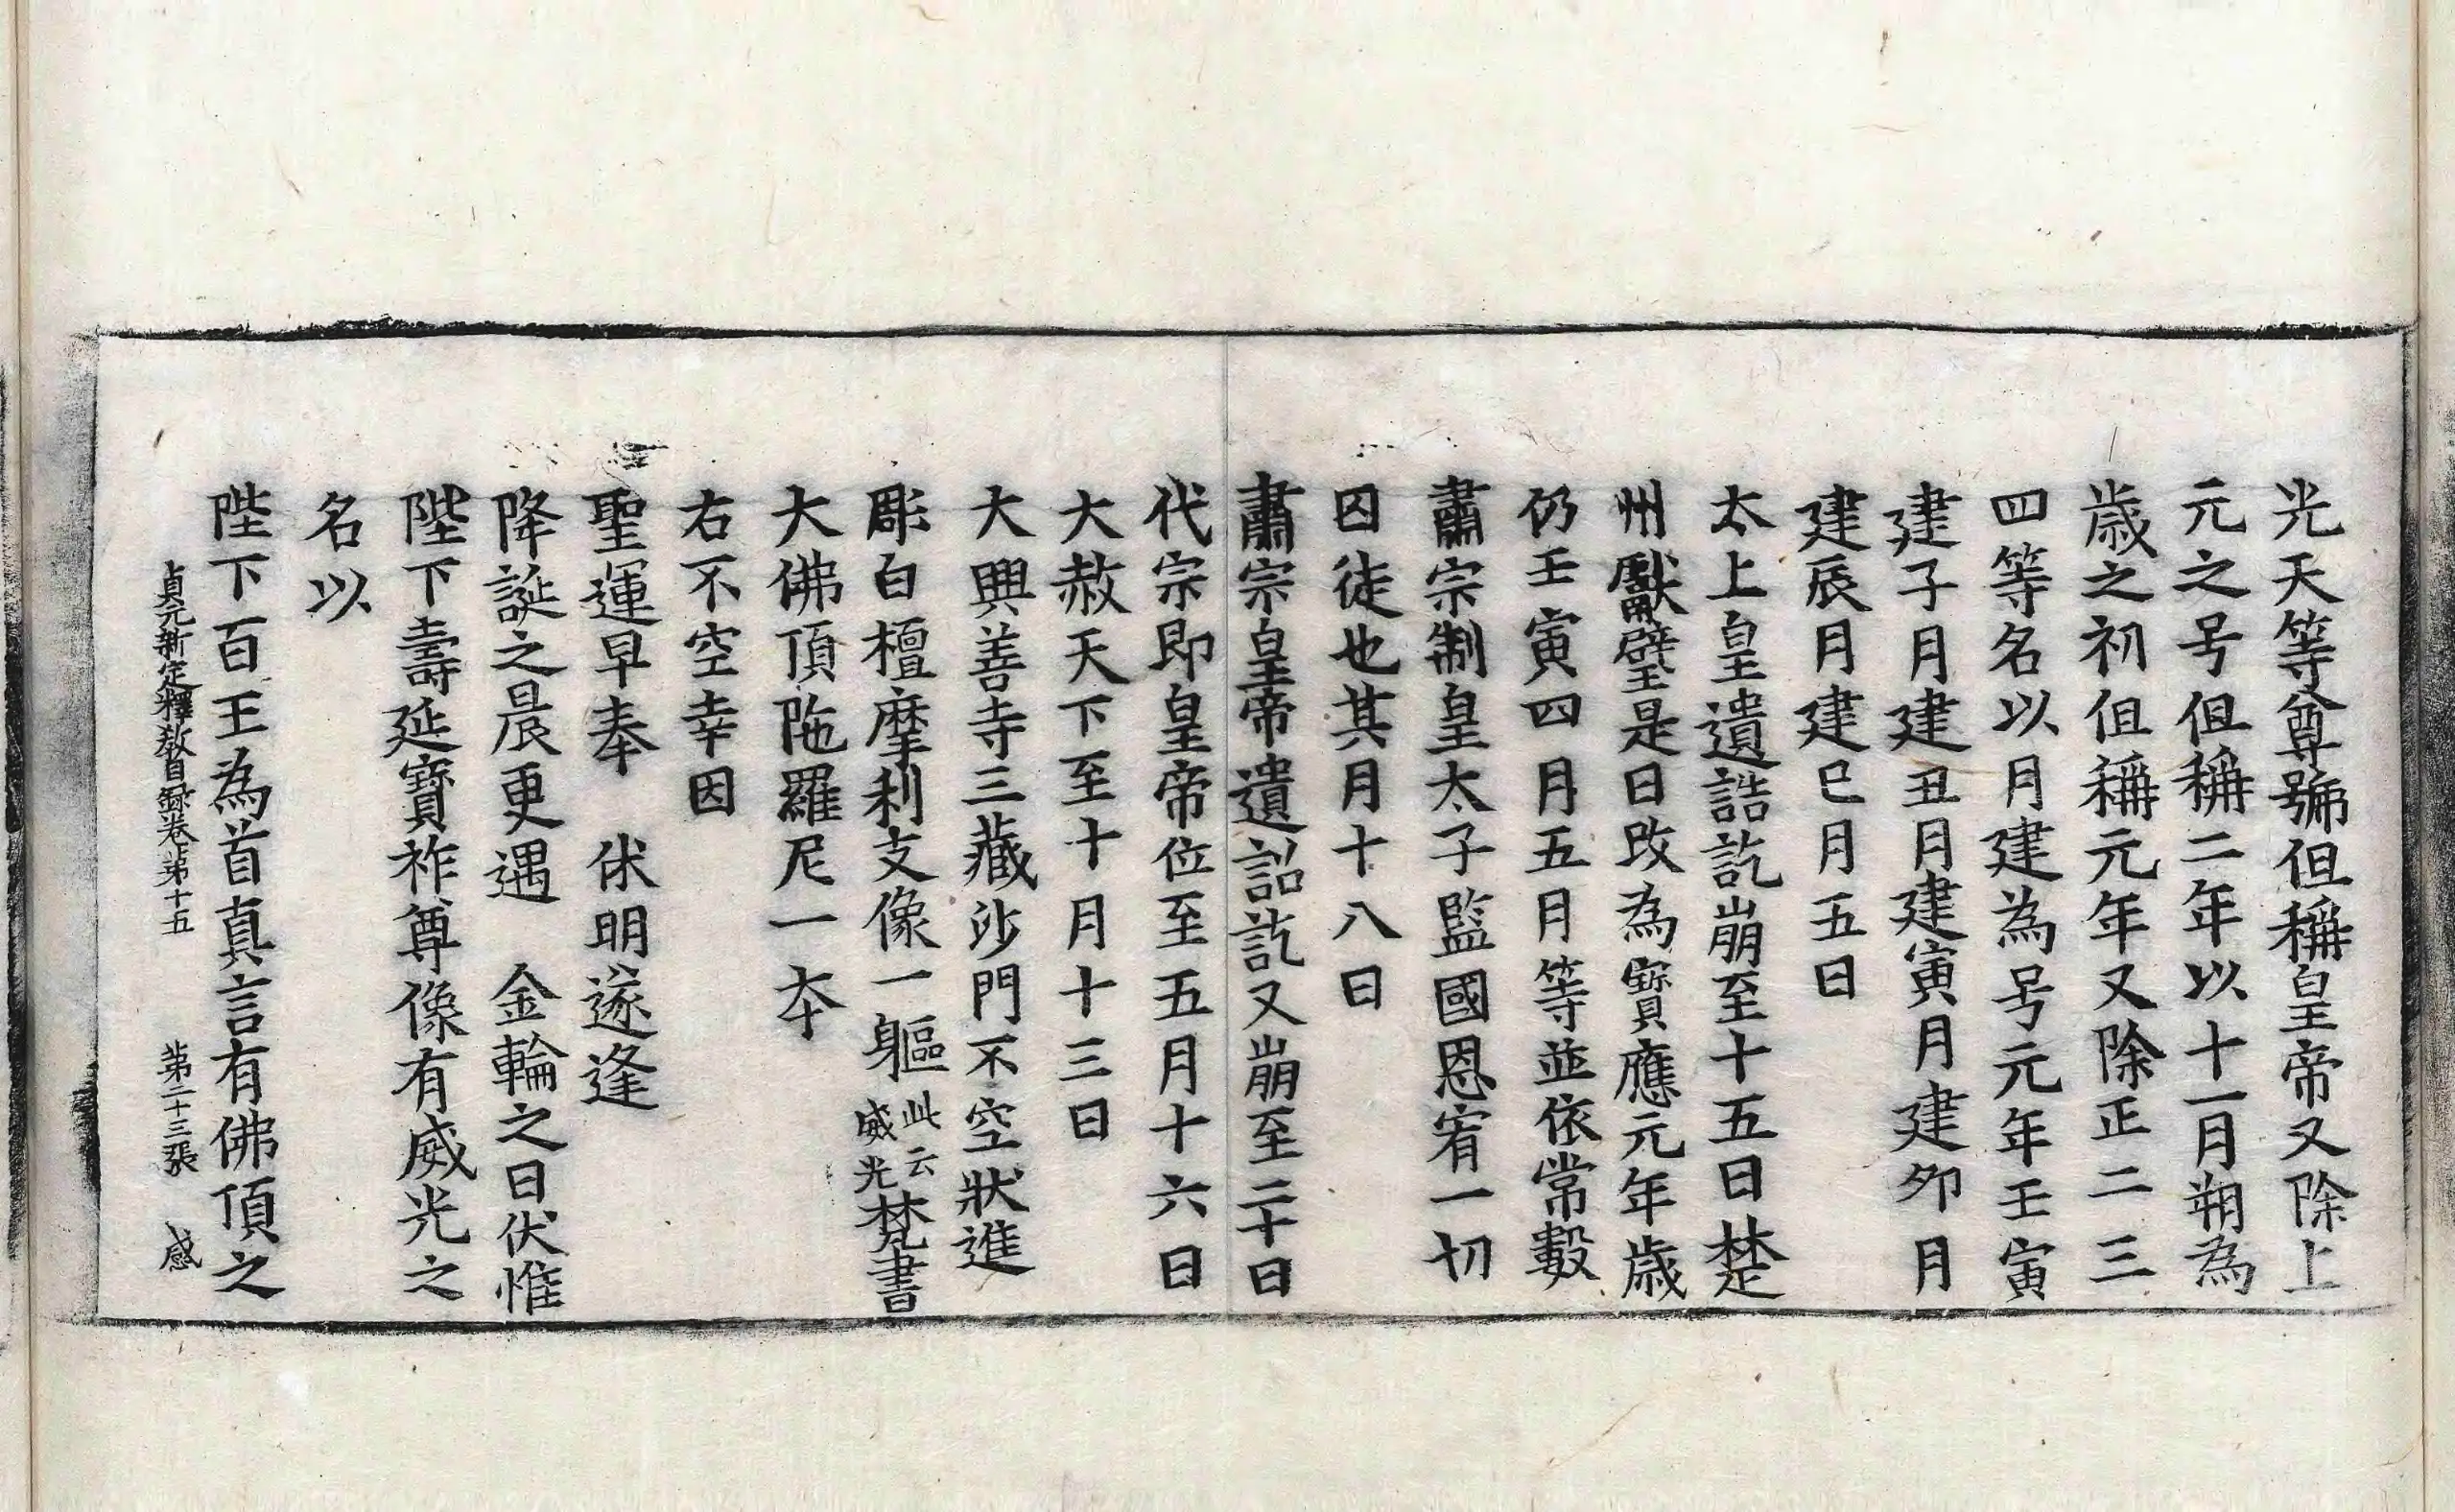 光天等尊號但稱皇帝又除上
元之号但稱二年以十一月朔為
歲之初但稱元年又除正二三
四等名以月建為号元年壬寅
建子月建丑月建寅月建夘月
建辰月建巳月五日
太上皇遺誥訖崩至十五日楚
州獻璧是日改為寶應元年歲
仍壬寅四月五月等並依常數
肅宗制皇太子監國恩宥一切
囚徒也其月十八日
肅宗皇帝遺詔訖又崩至二十日
代宗即皇帝位至五月十六日
大赦天下至十月十三日
大興善寺三藏沙門不空狀進
彫白檀摩利支像一軀此云威光梵書
大佛頂陁羅尼一本
右不空幸因
聖運早奉　休明遂逢
降誕之晨更遇　金輪之日伏惟
陛下壽延寶祚尊像有威光之
名以
陛下百王為首真言有佛頂之
貞元新定釋教目錄卷第十五　第二十三張　感